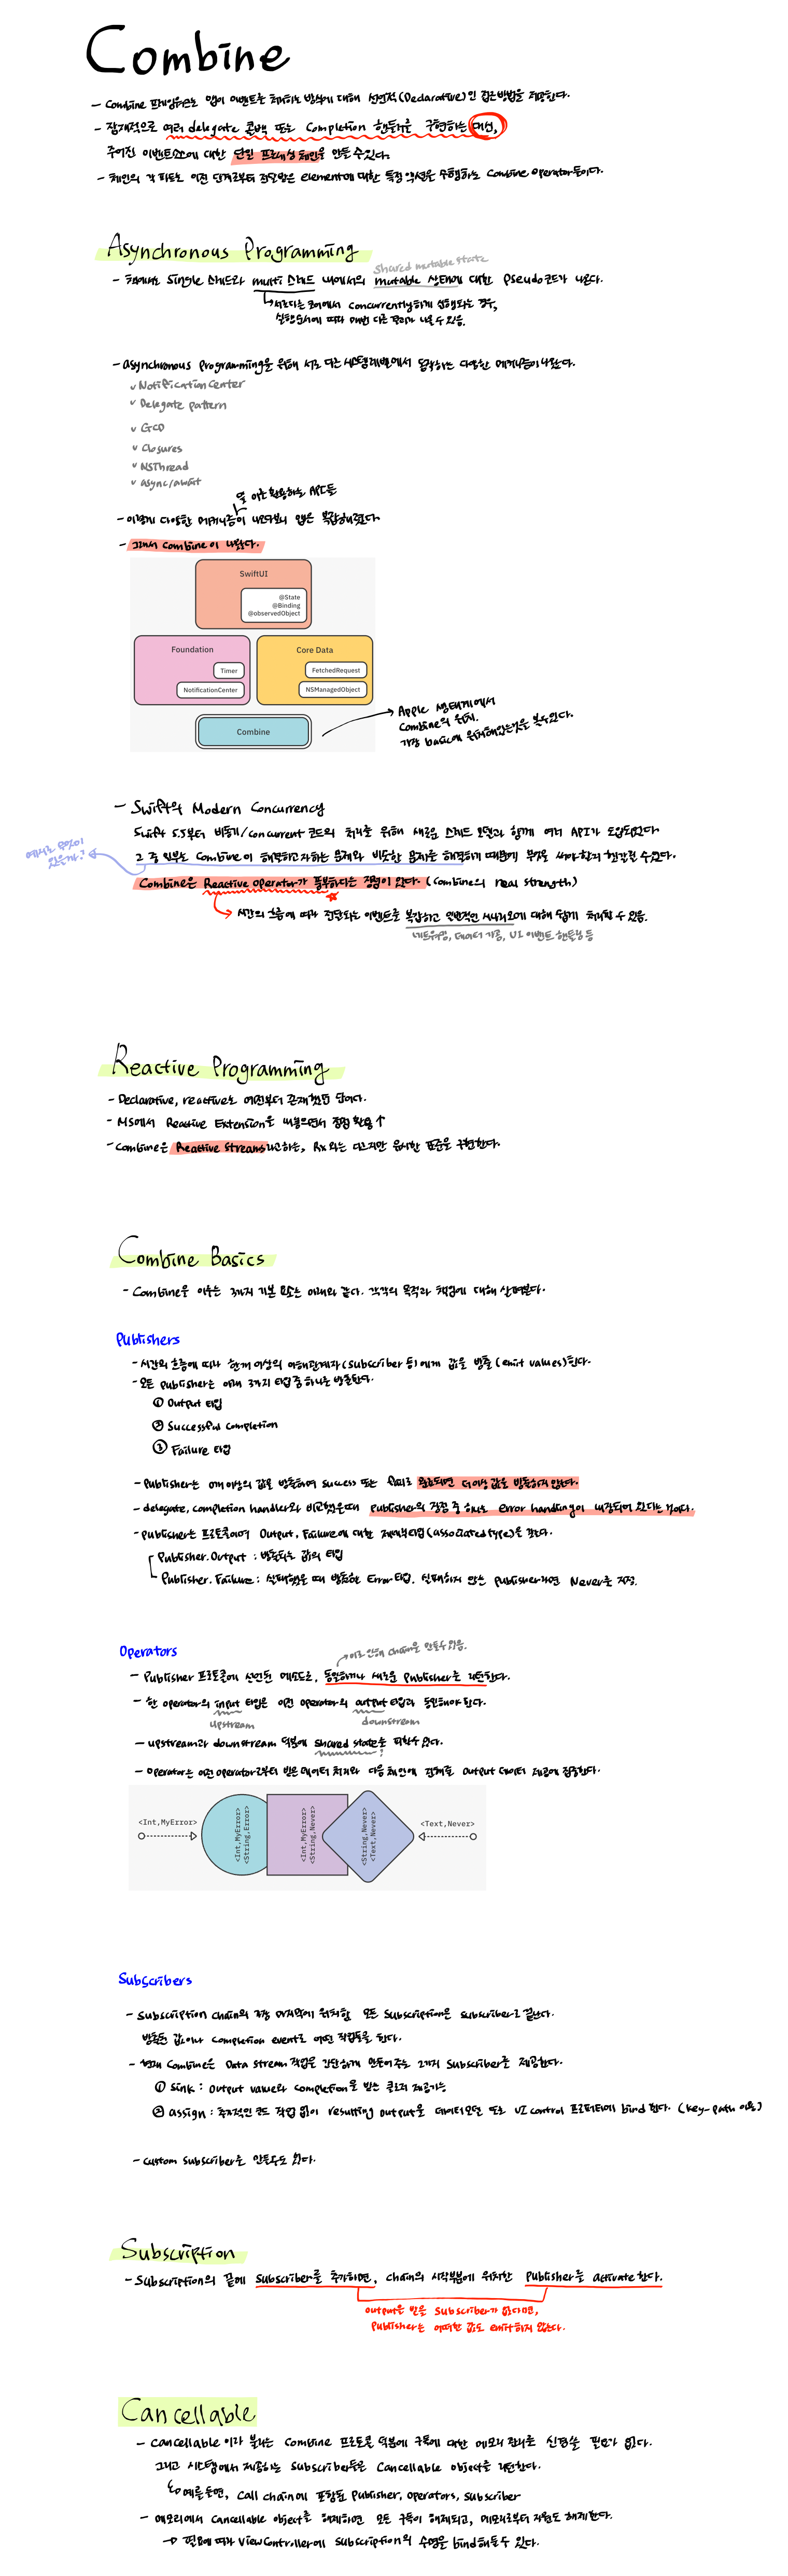 Combine
- Combine 프레임워크는 앱이 이벤트를 처리하는 방식에 대해 선언적(Declarative)인 접근방법을 제공한다.
- 잠재적으로 여러 delegate 콜백 또는 Completion 핸들러를 구현하는 대신,
주어진 이벤트소스에 대한 단일 프로세싱 체인을 만들 수 있다.
- 체인의 각 파트는 이전 단계로부터 전달받은 element에 대한 특정 액션을 수행하는 Combine operator들이다.
Asynchronous Programming
Shared mutable state
- 책에서는 Single 스레드와 multi 스레드 내에서의 mutable 상태에 대한 Pseudo코드가 나온다.
서로다른 코어에서 concurrently하게 실행되는 경우,
실행순서에 따라 매번 다른 결과가 나올 수 있음.
- asynchronous Programming을 위해 서로 다른 시스템레벨에서 동작하는 다양한 메커니즘이 나왔다.
v Notification Center
v Delegate pattern
v GCD
v Closures
v NSThread
v async/await
및 이를 활용하는 API들
- 이렇게 다양한 메커니즘이 나오다보니 앱은 복잡해졌다.
- 그래서 Combine이 나왔다.
SwiftUI
@State
@Binding
@observedObject
Foundation
Timer
NotificationCenter
Core Data
FetchedRequest
NSManagedObject
Combine
Apple 생태계에서
Combine의 위치.
가장 basic에 위치해있는것을 볼수있다.
- Swift의 Modern Concurrency
Swift 5.5부터 비동기/concurrent 코드의 처리를 위해 새로운 스레드 모델과 함께 여러 API가 도입되었다
그 중 일부는 Combine이 해결하고자하는 문제와 비슷한 문제를 해결하기 때문에 무엇을 써야할지 헷갈릴 수있다.
예시로 무엇이
있을까?
Combine은 Reactive operator가 풍부하다는 장점이 있다. (Combine의 real strength)
시간의 흐름에 따라 전달되는 이벤트를 복잡하고 일반적인 시나리오에 대해 쉽게 처리할 수 있음.
네트워킹, 데이터 가공, UI 이벤트 핸들링 등
Reactive Programming
- Declarative, reactive는 예전부터 존재했던 단어다.
- MS에서 Reactive Extension을 내놓으면서 점점 활용 ↑
- Combine은 Reactive Streams라고하는, Rx와는 다르지만 유사한 표준을 구현한다.
Combine Basics
- Combine을 이루는 3가지 기본 요소는 아래와 같다. 각각의 목적과 책임에 대해 살펴본다.
Publishers
- 시간의 흐름에 따라 한개 이상의 이해관계자(subscriber 등)에게 값을 방출(emit values)한다.
- 모든 publisher는 아래 3가지 타입 중 하나를 방출한다.
① Output 타입
② Successful completion
③ Failure 타입
- Publisher는 0개 이상의 값을 방출하며 success 또는 실패로 종료되면 더이상 값을 방출하지 않는다.
- delegate, completion handler와 비교했을때 publisher의 장점 중 하나는 error handling이 내장되어 있다는 것이다.
- publisher는 프로토콜이며 Output, Failure에 대한 제네릭타입(associated type)을 갖는다.
Publisher.Output : 방출되는 값의 타입
Publisher.Failure : 실패했을 때 방출할 Error타입. 실패하지 않는 publisher라면 Never를 지정.
Operators
이로 인해 chain을 만들수있음.
- Publisher 프로토콜에 선언된 메소드로, 동일하거나 새로운 publisher를 리턴한다.
- 한 operator의 input 타입은 이전 operator의 output 타입과 동일해야 한다.
upstream
downstream
- upstream과 downstream 덕분에 shared state를 피할수있다.
?
- Operator는 이전 operator로부터 받은 데이터 처리와 다음 체인에 전해줄 output 데이터 제공에 집중한다.
<Int,MyError>
<Int,MyError>
<String,Error>
<Int,MyError>
<String,Never>
<String,Never>
<Text,Never>
<Text,Never>
Subscribers
- Subscription chain의 가장 마지막에 위치함. 모든 subscription은 subscriber로 끝난다.
방출된 값이나 completion event로 어떤 작업들을 한다.
- 현재 Combine은 Data stream 작업을 간단하게 만들어주는 2가지 subscriber를 제공한다.
① sink : output value와 completion을 받는 클로저 제공가능
② assign : 추가적인 코드 작업 없이 resulting output을 데이터모델 또는 UI control 프로퍼티에 bind 한다. (key-path 이용)
- custom subscriber를 만들수도 있다.
Subscription
- Subscription의 끝에 Subscriber를 추가하면, chain의 시작부분에 위치한 Publisher를 activate 한다.
output을 받을 subscriber가 없다면,
publisher는 어떠한 값도 emit하지 않는다.
Cancellable
- Cancellable 이라 불리는 Combine 프로토콜 덕분에 구독에 대한 메모리 관리를 신경쓸 필요가 없다.
그리고 시스템에서 제공하는 subscriber들은 Cancellable object를 리턴한다.
예를들면, call chain에 포함된 publisher, operators, subscriber
- 메모리에서 Cancellable object를 해제하면 모든 구독이 해제되고, 메모리로부터 자원도 해제한다.
→ 필요에 따라 ViewController에 subscription의 수명을 bind해둘 수 있다.